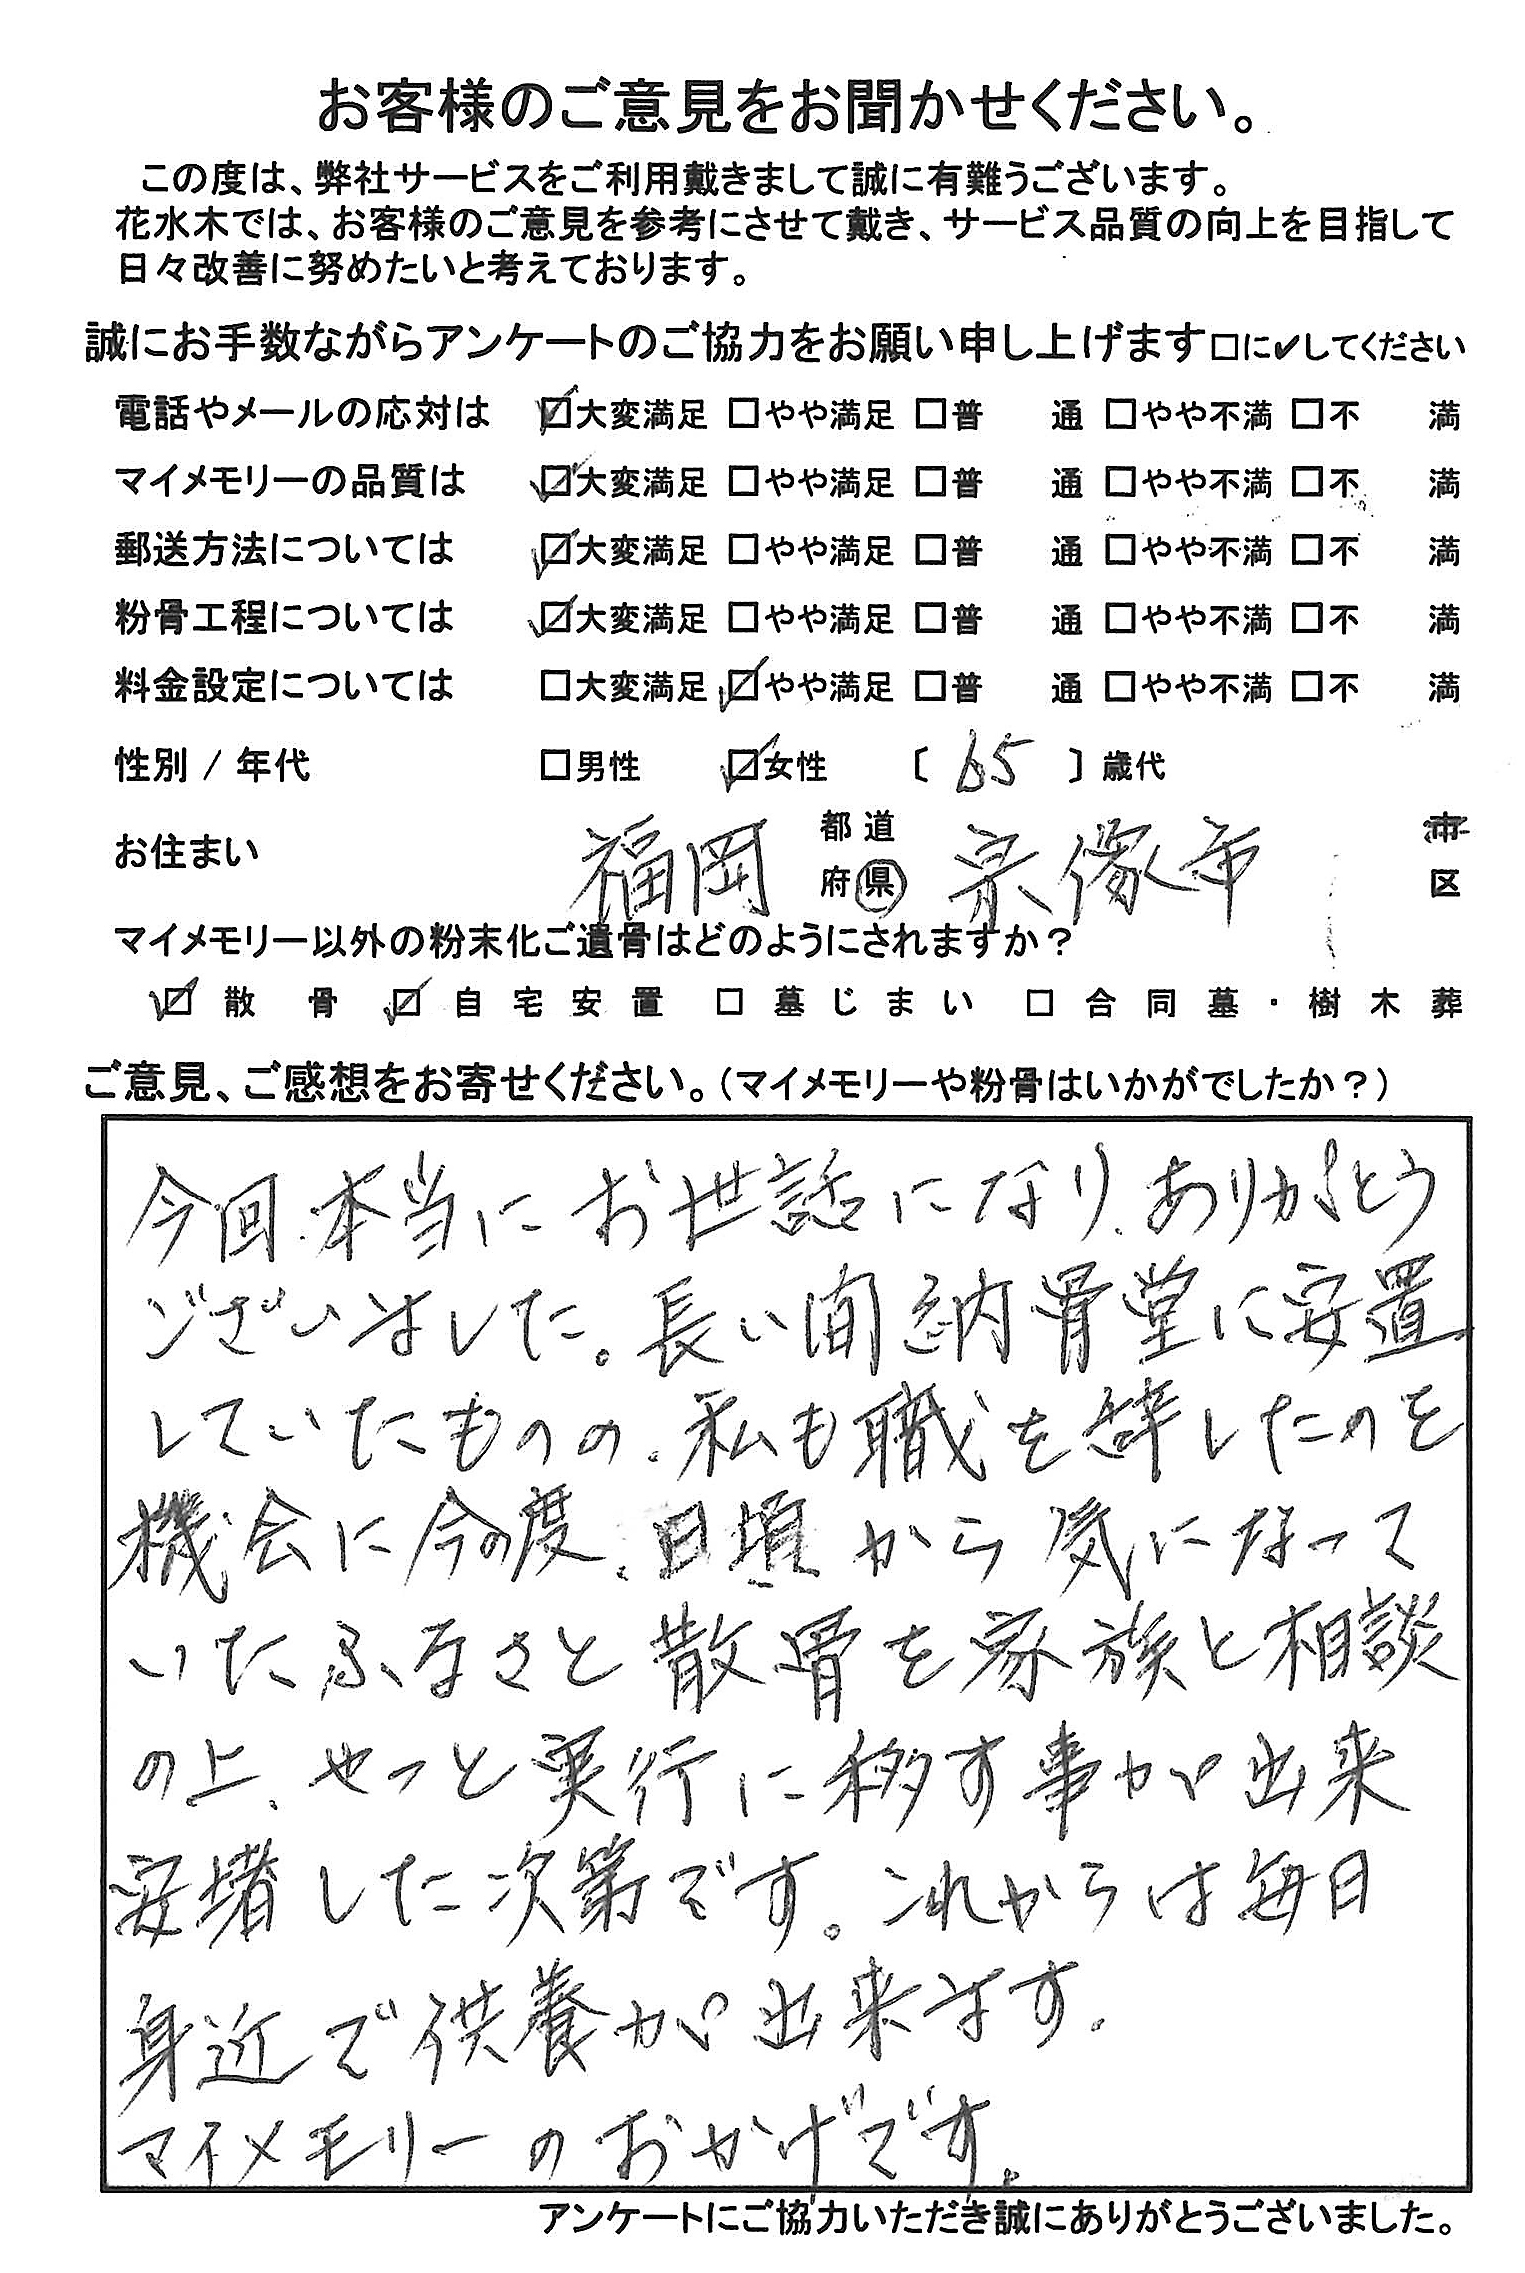 お客様のご意見をお聞かせください。
この度は、弊社サービスをご利用戴きまして誠に有難うございます。
花水木では、お客様のご意見を参考にさせて戴き、サービス品質の向上を目指して
日々改善に努めたいと考えております。
誠にお手数ながらアンケートのご協力をお願い申し上げます□に✔してください
電話やメールの応対は ☑大変満足 □やや満足 □普 通 □やや不満 □不 満
マイメモリーの品質は ☑大変満足 □やや満足 □普 通 □やや不満 □不 満
郵送方法については ☑大変満足 □やや満足 □普 通 □やや不満 □不 満
粉骨工程については ☑大変満足 □やや満足 □普 通 □やや不満 □不 満
料金設定については □大変満足 ☑やや満足 □普 通 □やや不満 □不 満
性別 / 年代 □男性 ☑女性 〔 65 〕歳代
お住まい 福岡 都道府県 宗像市 市区
マイメモリー以外の粉末化ご遺骨はどのようにされますか?
☑ 散骨 ☑ 自宅安置 □ 墓じまい □ 合同墓・樹木葬
ご意見、ご感想をお寄せください。(マイメモリーや粉骨はいかがでしたか?)
今回、本当にお世話になり、ありがとう
ございました。長い間納骨堂に安置
していたものの、私も職を辞したのを
機会に今の度、日頃から気になって
いたふるさと散骨を家族と相談
の上、やっと実行に移す事が出来
安堵した次第です。これからは毎日
身近で供養が出来ます。
マイメモリーのおかげです。
アンケートにご協力いただき誠にありがとうございました。